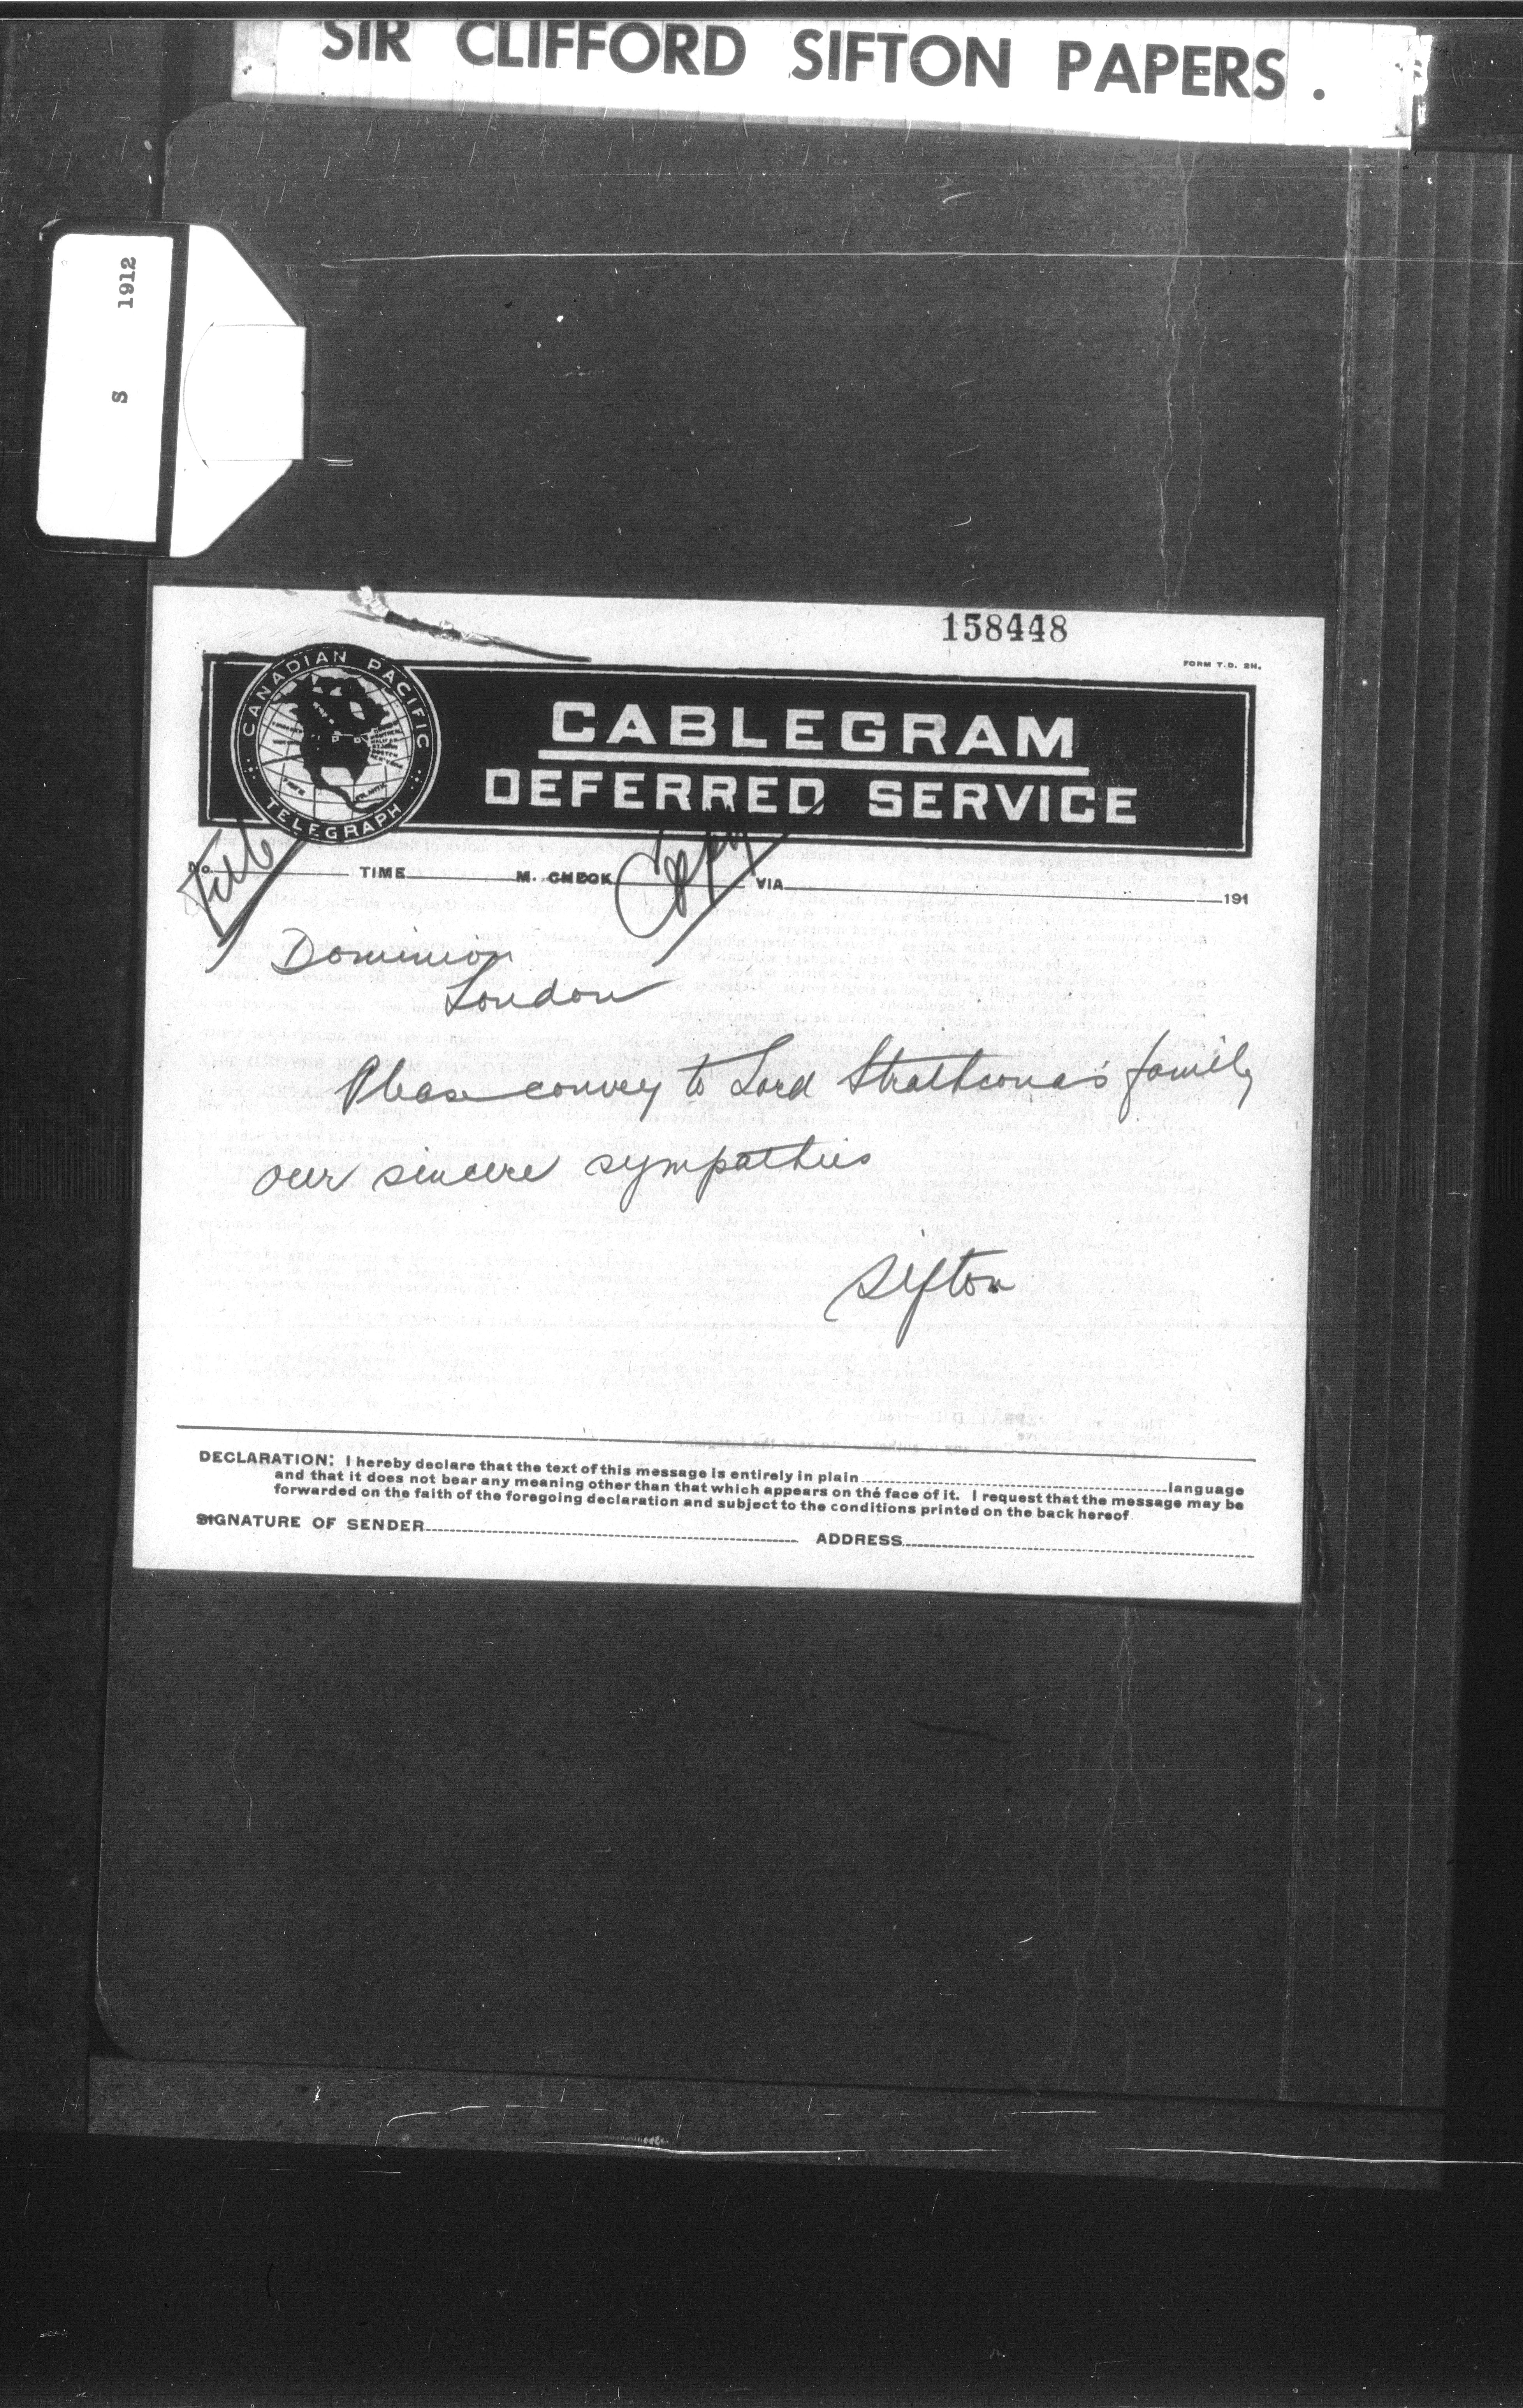 SIR CLIFFORD SIFTON PAPERS.
S 1912
158448
FORM T.D. 2H.
CANADIAN PACIFIC
TELEGRAPH
CABLEGRAM
DEFERRED SERVICE
File
Copy
No. TIME M. CHECK VIA 191
Dominion
London
Please convey to Lord Strathcona's family
our sincere sympathies
Sifton
DECLARATION: I hereby declare that the text of this message is entirely in plain language
and that it does not bear any meaning other than that which appears on the face of it. I request that the message may be
forwarded on the faith of the foregoing declaration and subject to the conditions printed on the back hereof
SIGNATURE OF SENDER ADDRESS